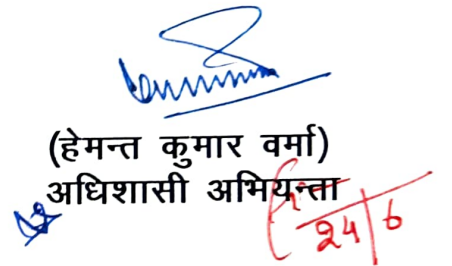 (हेमन्त कुमार वर्मा)
अधिशासी अभियन्ता
24/6